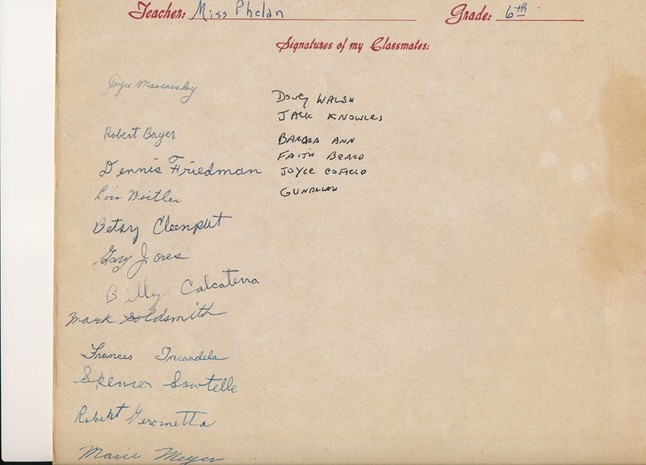 Teacher: Miss Phelan Grade: 6th
Signatures of my Classmates:
Joyce
Doug Walsh
Jack Knowles
Robert Bayer
Barbra Ann
Faith Beard
Dennis Friedman
Joyce Cofield
Lois Beitler
Betsy
Gary Jones
Billy Calcaterra
Mark Goldsmith
Frances Incandela
Spencer Sawtelle
Robert Gerometta
Marie Meyer